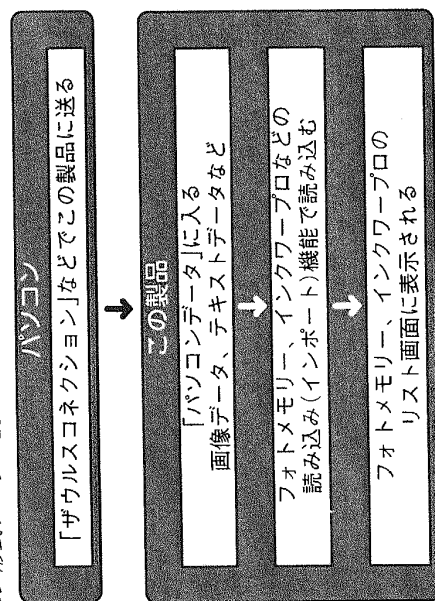 パソコン
「ザウルスコネクション」などでこの製品に送る
この製品
「パソコンデータ」に入る
画像データ、テキストデータなど
フォトメモリー、インクワープロなどの
読み込み(インポート)機能で読み込む
フォトメモリー、インクワープロの
リスト画面に表示される